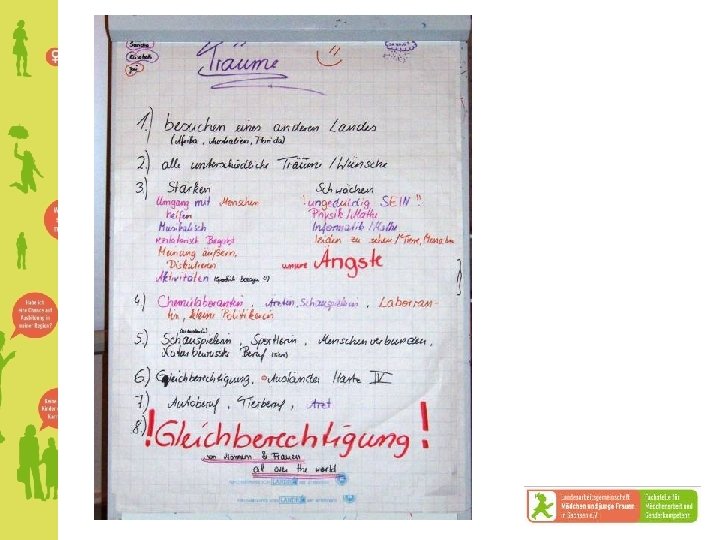 Sandra
Träume
1.) besuchen eines anderen Landes
2.) alle unterschiedliche Träume / Wünsche
3.) Stärken Schwächen
Umgang mit Menschen ! ungeduldig SEIN !!
helfen Physik / Mathe
Musikalisch Informatik / Mathe
Meinung äußern,
Diskutieren unsere Ängste
Aktivitäten
4.) Chemielaborantin, Ärztin, Schauspielerin, Laboran-
tin, keine Politikerin
5.) Schauspielerin, Sportlerin, Menschenverbunden,
6.) Gleichberechtigung, Ausländer Hartz IV
7.) Autoberuf, Tierberuf, Arzt
8.) ! Gleichberechtigung !
von Männern & Frauen
all over the world
Habe ich
eine Chance auf
Ausbildung in
meiner Region?
Keine
Kinder
Karr
Landesarbeitsgemeinschaft
Mädchen und junge Frauen
in Sachsen e.V.
Fachstelle für
Mädchenarbeit und
Genderkompetenz